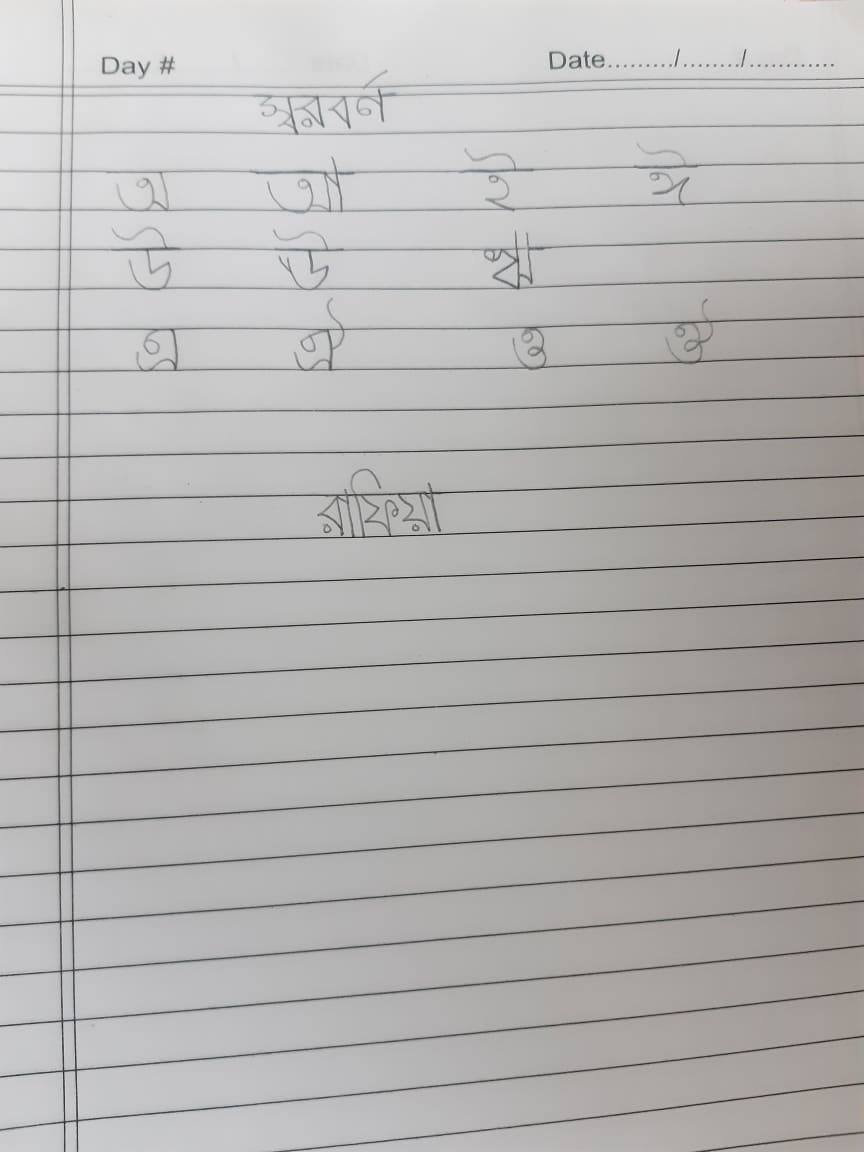 Day # Date........./......../............
স্বরবর্ণ
অ আ ই ঈ
উ ঊ ঋ
এ ঐ ও ঔ
রাফিয়া